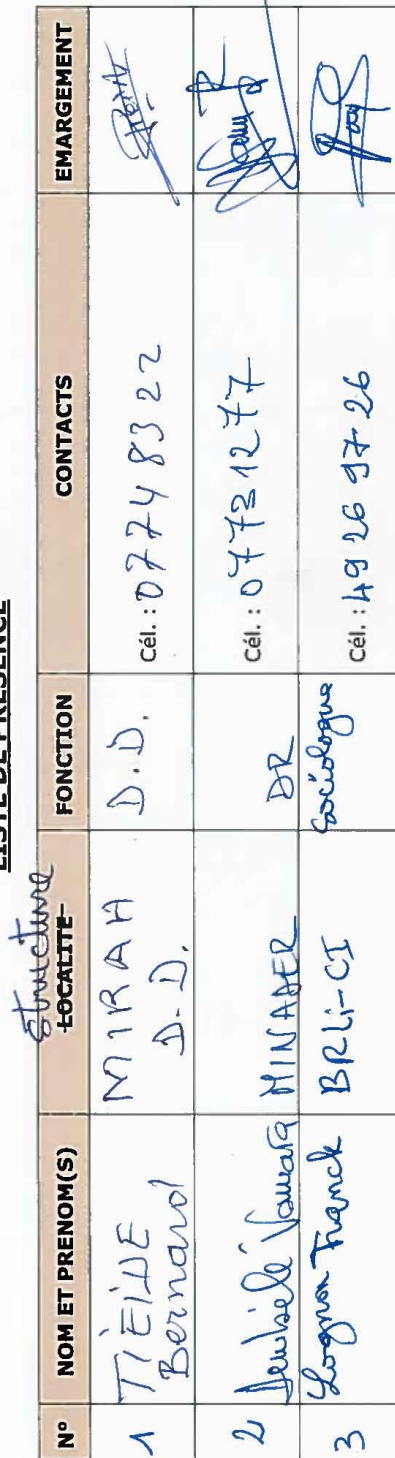 LISTE DE PRESENCE
Structure
N° NOM ET PRENOM(S) LOCALITE FONCTION CONTACTS EMARGEMENT
1 TIEIDE Bernard MIRAH D.D. D.D. Cél. : 07748322
2 Vamara MINADER DR Cél. : 07731277
3 Lognon Franck BRLi-CI Sociologue Cél. : 49 26 97-26